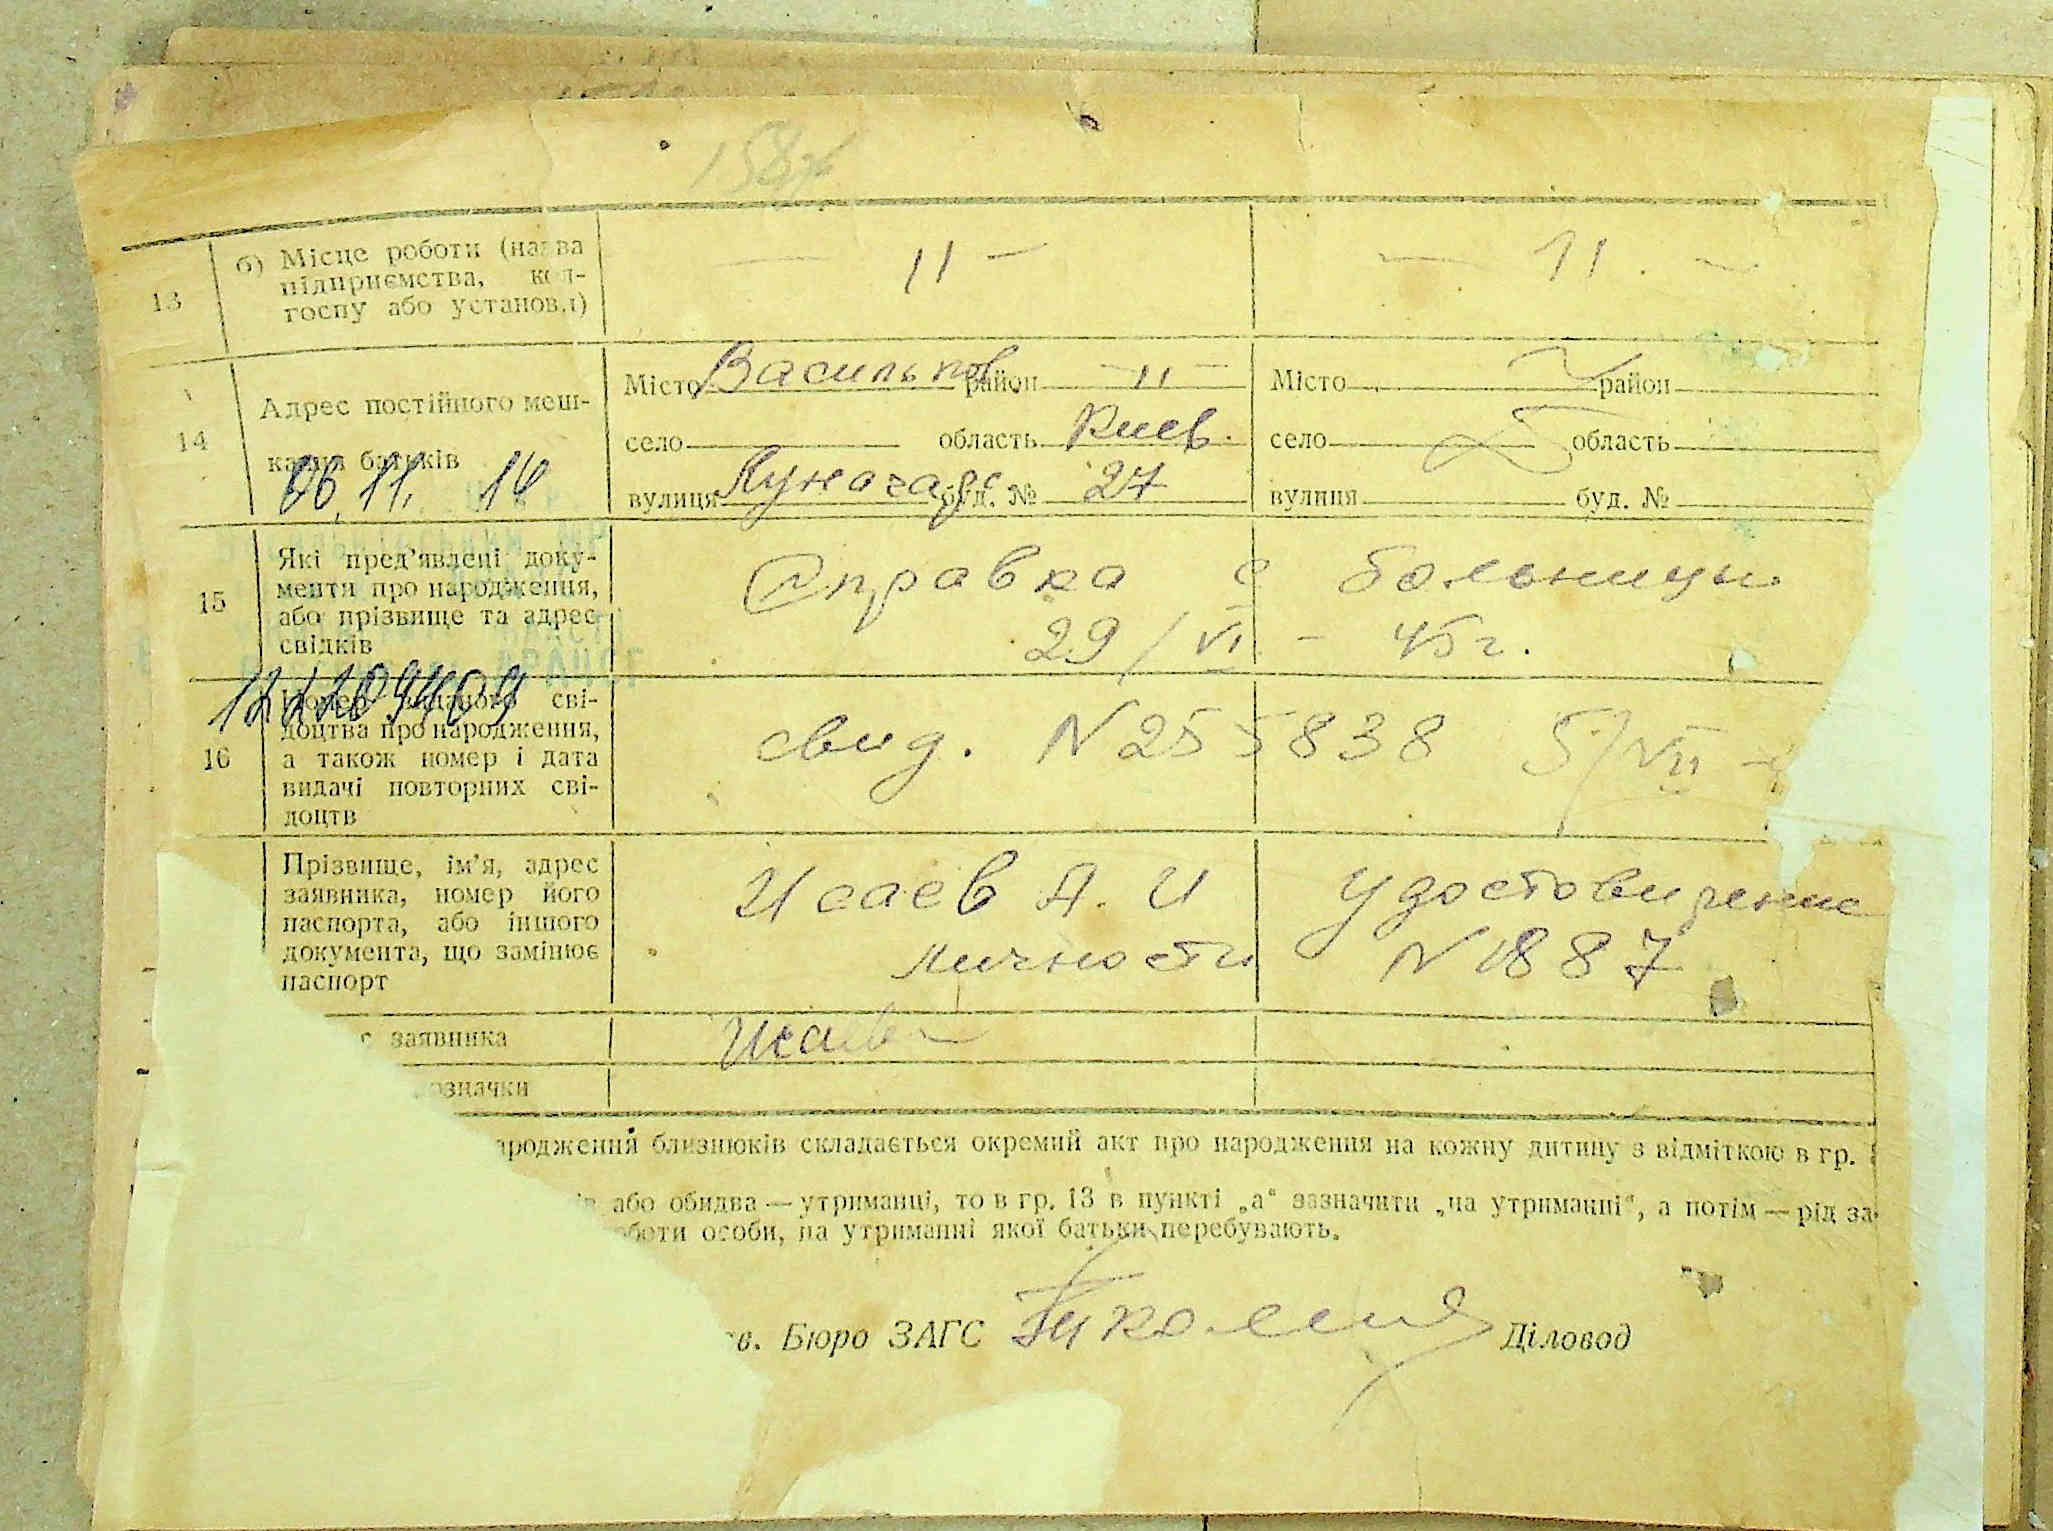 13
б) Місце роботи (назва
підприємства, кол-
госпу або установи)
— 11 —
— 11 . —
14
Адрес постійного меш-
кання батьків
06.11. 14
Місто Васильков район — 11 —
село область Киев.
вулиця Луначарс. буд. № 27
Місто район
село область
вулиця буд. №
15
Які пред'явлені доку-
менти про народження,
або прізвище та адрес
свідків
Справка с больницы
29/VI - 45 г.
16
Номер виданого сві-
доцтва про народження,
а також номер і дата
видачі повторних сві-
доцтв
свид. N 255838 5/VII
Прізвище, ім'я, адрес
заявника, номер його
паспорта, або іншого
документа, що замінює
паспорт
Исаев А. И удостовирение
личности N 1887
с заявника
Исаев
означки
ародження близнюків складається окремий акт про народження на кожну дитину з відміткою в гр.
ів або обидва — утриманці, то в гр. 13 в пункті „а" зазначити „на утриманні", а потім — рід за-
оботи особи, на утриманні якої батьки перебувають.
ав. Бюро ЗАГС Діловод